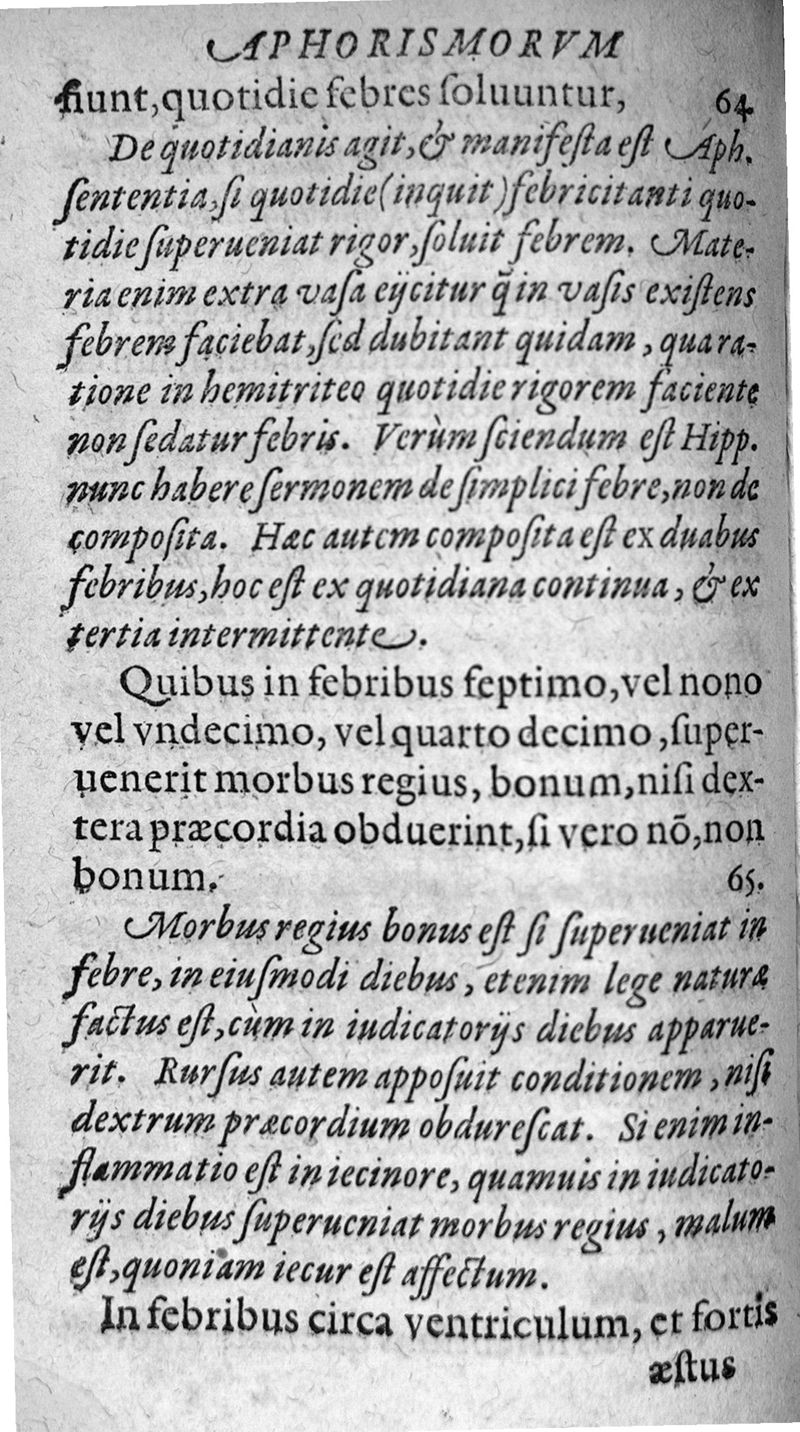 APHORISMORVM
fiunt, quotidie febres ſoluuntur, 64.
De quotidianis agit, & manifeſta eſt Aph.
ſententia, ſi quotidie (inquit) febricitanti quo-
tidie ſuperueniat rigor, ſoluit febrem. Mate-
ria enim extra vaſa eijcitur q̃ in vaſis exiſtens
febrem faciebat, ſed dubitant quidam, qua ra-
tione in hemitriteo quotidie rigorem faciente
non ſedatur febris. Verùm ſciendum eſt Hipp.
nunc habere ſermonem de ſimplici febre, non de
compoſita. Hæc autem compoſita eſt ex duabus
febribus, hoc eſt ex quotidiana continua, & ex
tertia intermittente.
Quibus in febribus ſeptimo, vel nono
vel vndecimo, vel quarto decimo, ſuper-
uenerit morbus regius, bonum, niſi dex-
tera præcordia obduerint, ſi vero nō, non
bonum. 65.
Morbus regius bonus eſt ſi ſuperueniat in
febre, in eiuſmodi diebus, etenim lege naturæ
factus eſt, cùm in iudicatorijs diebus apparue-
rit. Rurſus autem appoſuit conditionem, niſi
dextrum præcordium obdureſcat. Si enim in-
flammatio eſt in iecinore, quamuis in iudicato-
rijs diebus ſuperueniat morbus regius, malum
eſt, quoniam iecur eſt affectum.
In febribus circa ventriculum, et fortis
æſtus